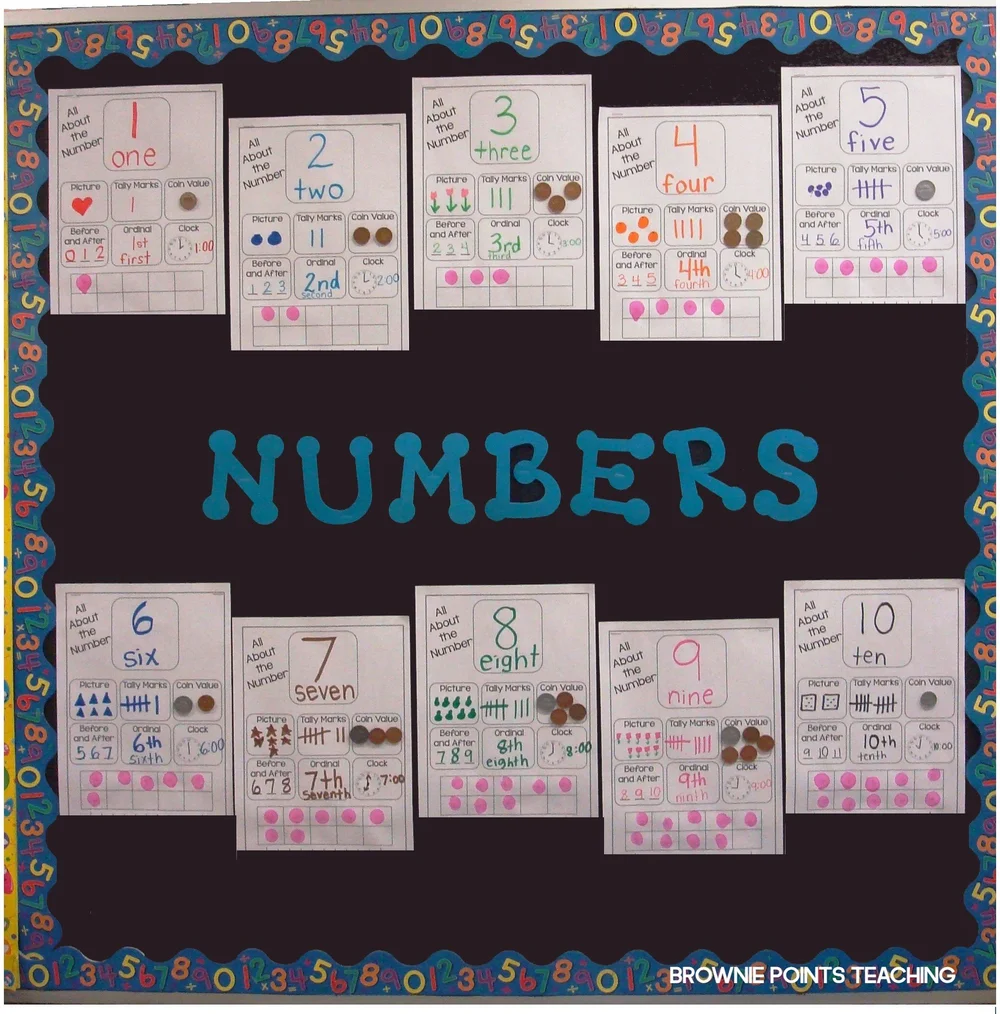 All
About
the
Number
1
one
Picture Tally Marks Coin Value
Before
and After
Ordinal
Clock
0 1 2
1st
first
1:00
All
About
the
Number
2
two
Picture Tally Marks Coin Value
Before
and After
Ordinal
Clock
1 2 3
2nd
second
2:00
All
About
the
Number
3
three
Picture Tally Marks Coin Value
Before
and After
Ordinal
Clock
2 3 4
3rd
third
3:00
All
About
the
Number
4
four
Picture Tally Marks Coin Value
Before
and After
Ordinal
Clock
3 4 5
4th
fourth
4:00
All
About
the
Number
5
five
Picture Tally Marks Coin Value
Before
and After
Ordinal
Clock
4 5 6
5th
fifth
5:00
NUMBERS
All
About
the
Number
6
six
Picture Tally Marks Coin Value
Before
and After
Ordinal
Clock
5 6 7
6th
sixth
6:00
All
About
the
Number
7
seven
Picture Tally Marks Coin Value
Before
and After
Ordinal
Clock
6 7 8
7th
seventh
7:00
All
About
the
Number
8
eight
Picture Tally Marks Coin Value
Before
and After
Ordinal
Clock
7 8 9
8th
eighth
8:00
All
About
the
Number
9
nine
Picture Tally Marks Coin Value
Before
and After
Ordinal
Clock
8 9 10
9th
ninth
9:00
All
About
the
Number
10
ten
Picture Tally Marks Coin Value
Before
and After
Ordinal
Clock
9 10 11
10th
tenth
10:00
BROWNIE POINTS TEACHING